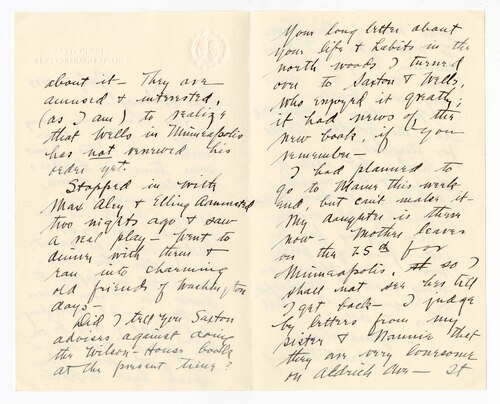 about it — They are
amused & interested,
(as I am) to realize
that Wells in Minneapolis
has not renewed his
order yet.
Stopped in with
Max Aley & Elling Aannestad
two nights ago & saw
a real play — Went to
dinner with them &
ran into charming
old friends of Washington
days —
Did I tell you Saxton
advises against doing
the Wilson-House book
at the present time?
Your long letter about
your life & habits in the
north woods I turned
over to Saxton & Wells,
who enjoyed it greatly;
it had news of the
new book, if you
remember —
I had planned to
go to Maine this week
end, but can't make it
My daughter is there
now — Mother leaves
on the 25th for
Minneapolis, so I
shall not see her till
I get back — I judge
by letters from my
sister & Nannie that
they are very lonesome
on Aldrich Ave — It